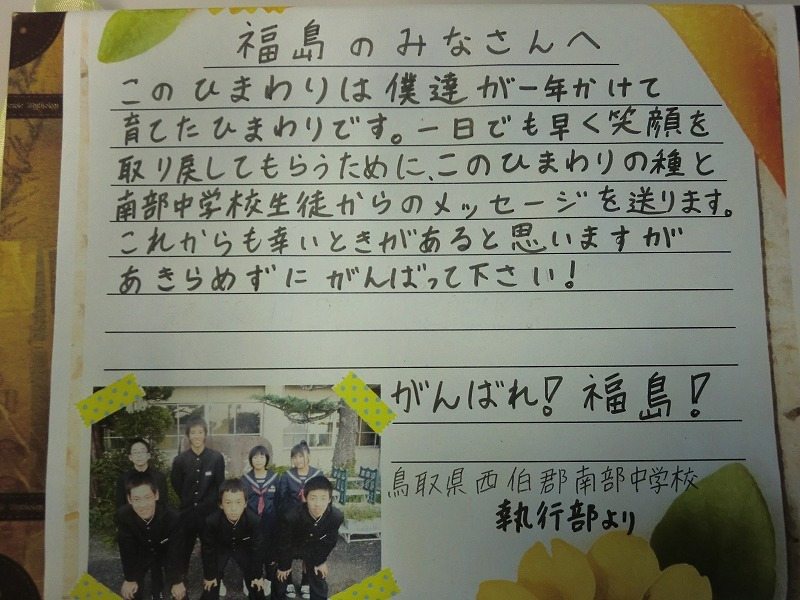 福島のみなさんへ
このひまわりは僕達が一年かけて
育てたひまわりです。一日でも早く笑顔を
取り戻してもらうために、このひまわりの種と
南部中学校生徒からのメッセージを送ります。
これからも幸いときがあると思いますが
あきらめずにがんばって下さい!
がんばれ!福島!
鳥取県西伯郡南部中学校
執行部より